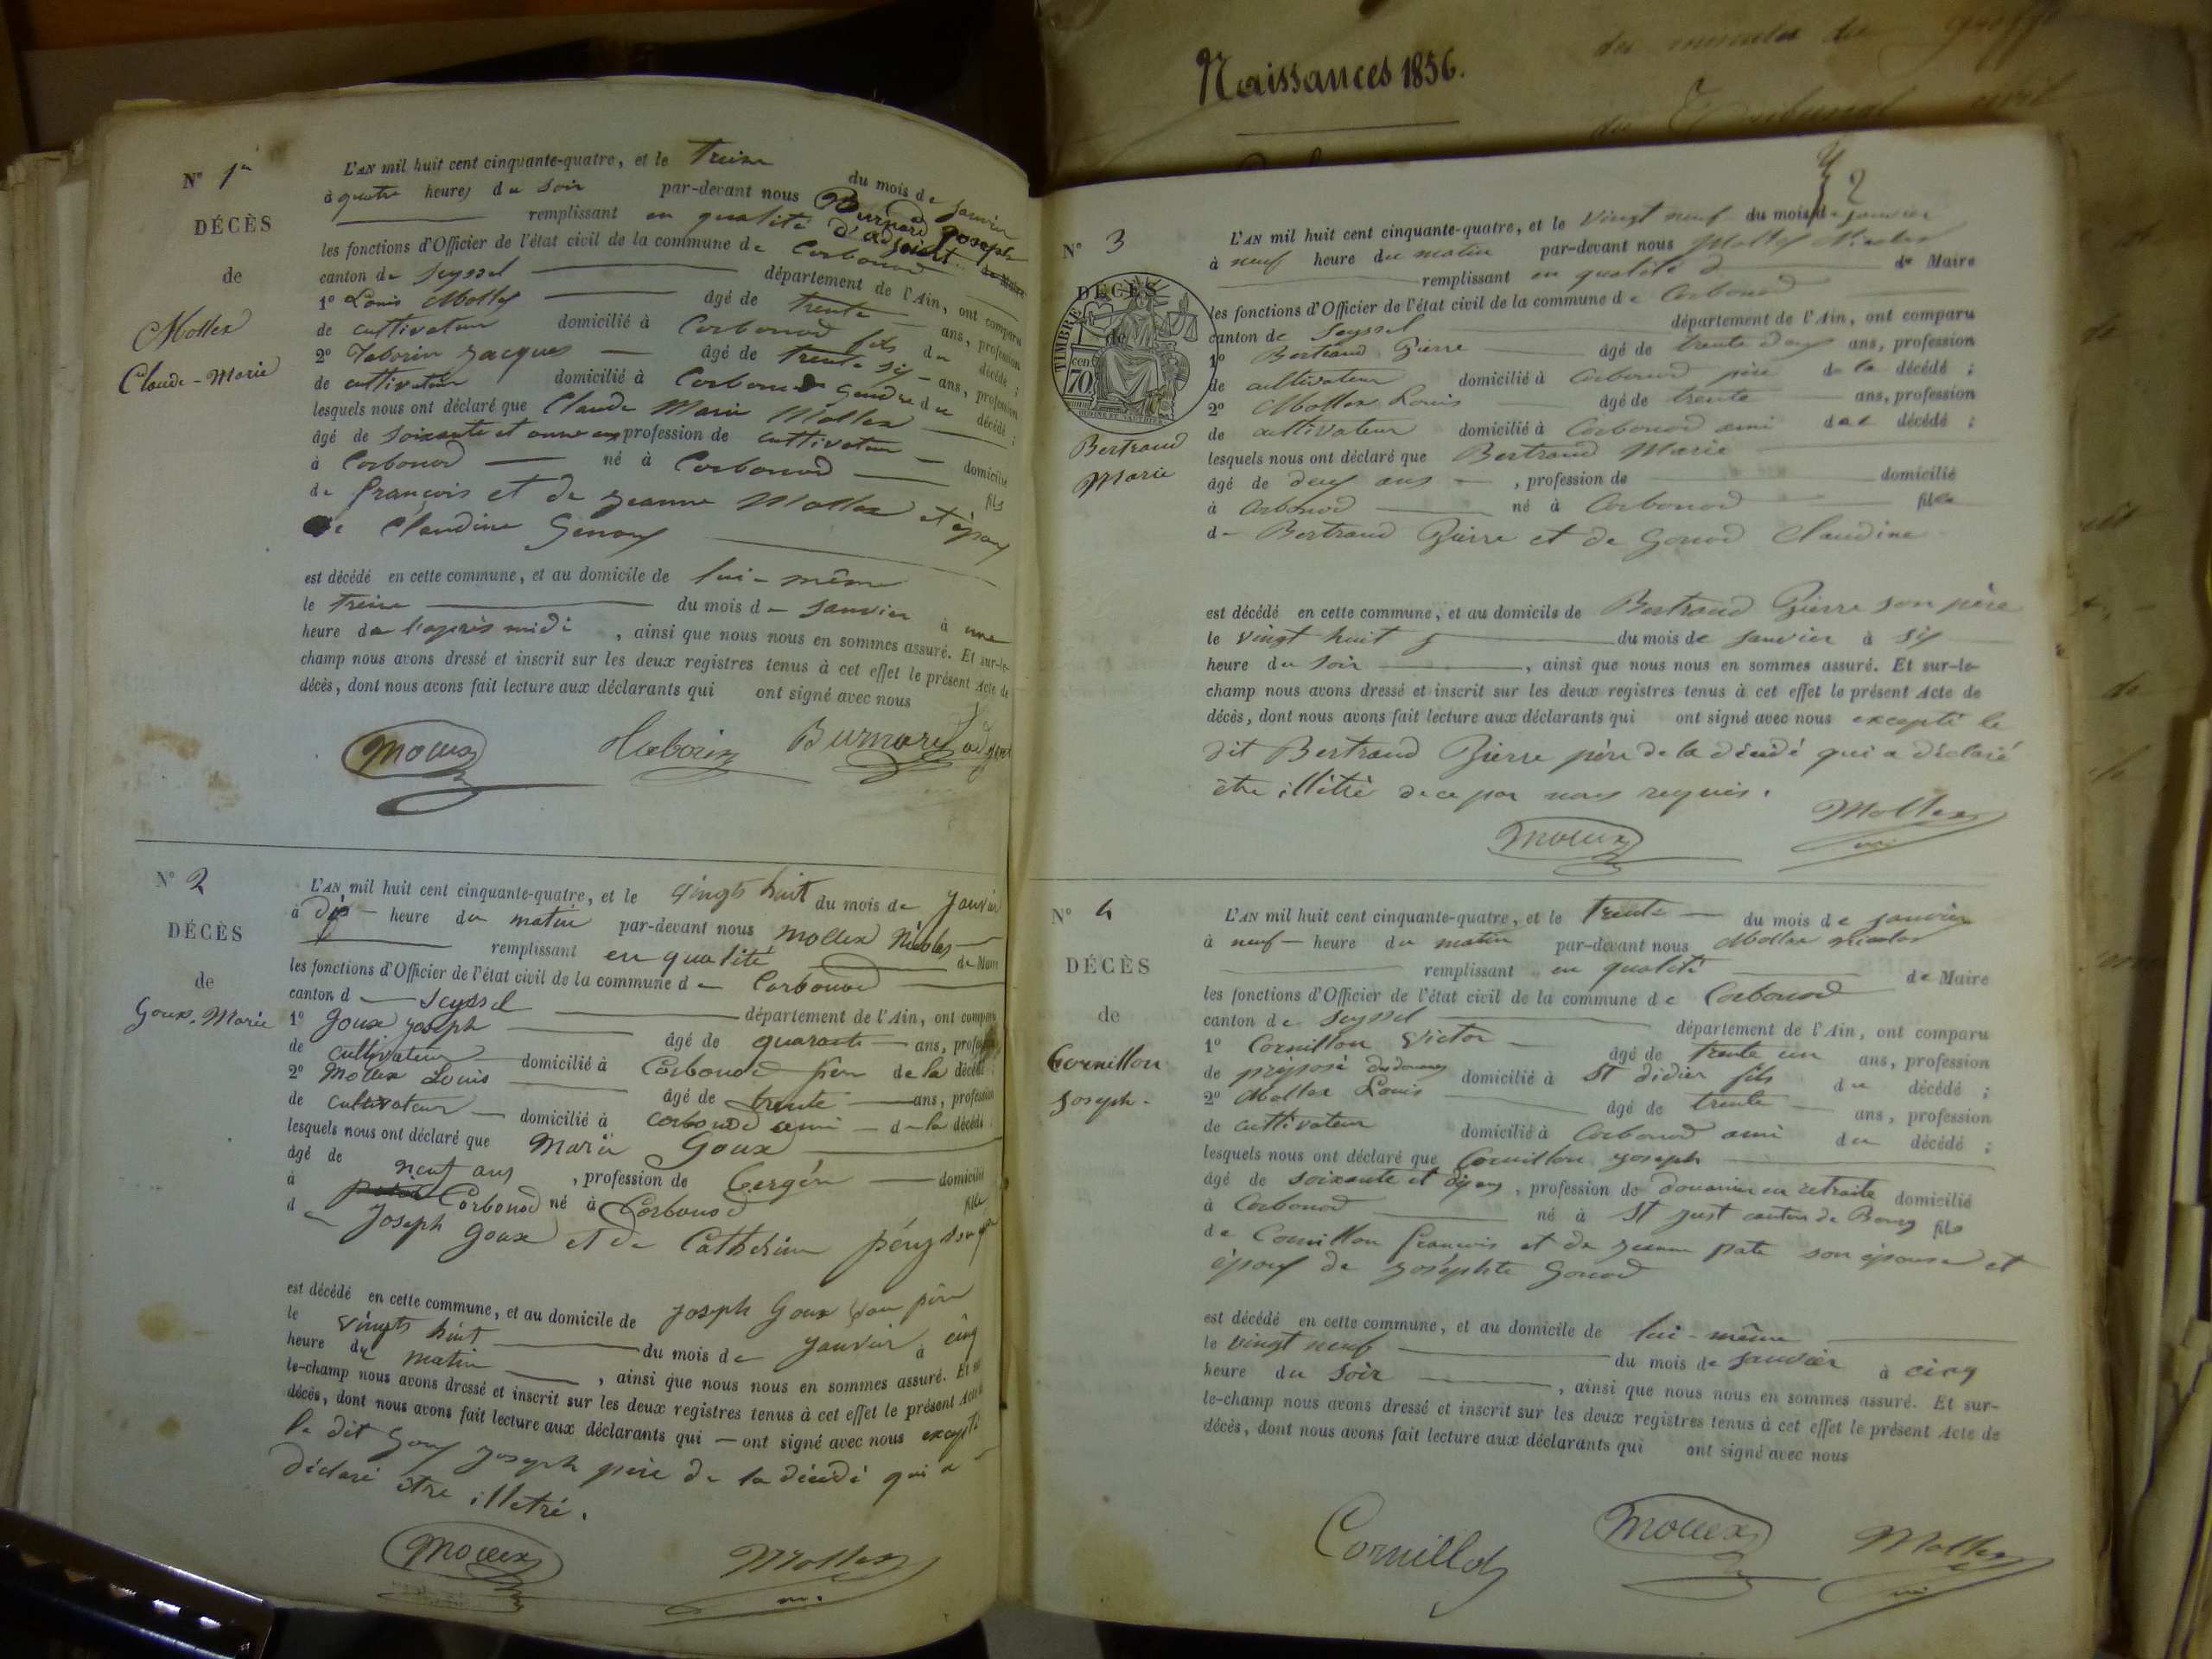 Naissances 1856.
N° 1er
DÉCÈS
de
Mollex
Claude-Marie
L'AN mil huit cent cinquante-quatre, et le treize du mois de janvier
à quatre heures du soir par-devant nous Burnard Joseph
remplissant en qualité d'adjoint
les fonctions d'Officier de l'état civil de la commune de Corbonod
canton de Seyssel département de l'Ain, ont comparu
1° Louis Mollex âgé de trente ans, profession
de cultivateur domicilié à Corbonod fils du décédé ;
2° Taborin Jacques âgé de trente six ans, profession
de cultivateur domicilié à Corbonod gendre du décédé ;
lesquels nous ont déclaré que Claude Marie Mollex
âgé de soixante et onze ans profession de cultivateur domicilié
à Corbonod né à Corbonod fils
de françois et de jeanne Mollex et époux
de Claudine
est décédé en cette commune, et au domicile de lui-même
le treize du mois de janvier à une
heure de l'après midi, ainsi que nous nous en sommes assuré. Et sur-le-
champ nous avons dressé et inscrit sur les deux registres tenus à cet effet le présent Acte de
décès, dont nous avons fait lecture aux déclarants qui ont signé avec nous
Mollex Taborin Burnard
N° 2
DÉCÈS
de
Goux. Marie
L'AN mil huit cent cinquante-quatre, et le vingt huit du mois de janvier
à dix heure du matin par-devant nous Mollex Nicolas
remplissant en qualité de Maire
les fonctions d'Officier de l'état civil de la commune de Corbonod
canton d Seyssel département de l'Ain, ont comparu
1° Goux joseph âgé de quarante ans, profession
de cultivateur domicilié à Corbonod père de la décédé
2° Mollex Louis âgé de trente ans, profession
de cultivateur domicilié à Corbonod ami de la décédé
lesquels nous ont déclaré que Marie Goux
âgé de neuf ans, profession de Bergère domicilié
à Corbonod né à Corbonod fille
de Joseph Goux et de Catherine
est décédé en cette commune, et au domicile de joseph Goux son père
le vingts huit du mois de janvier à cinq
heure du matin, ainsi que nous nous en sommes assuré. Et sur
le-champ nous avons dressé et inscrit sur les deux registres tenus à cet effet le présent Acte de
décès, dont nous avons fait lecture aux déclarants qui ont signé avec nous excepté
le dit Goux joseph père de la décédé qui a
déclaré être illetré.
Mollex Mollex
2
N° 3
DÉCÈS
de
TIMBRE
70
Bertrand
Marie
L'AN mil huit cent cinquante-quatre, et le vingt neuf du mois de janvier
à neuf heure du matin par-devant nous Mollex Nicolas
remplissant en qualité d de Maire
les fonctions d'Officier de l'état civil de la commune de Corbonod
canton de Seyssel département de l'Ain, ont comparu
1° Bertrand Pierre âgé de trente deux ans, profession
de cultivateur domicilié à Corbonod père de la décédé ;
2° Mollex Louis âgé de trente ans, profession
de cultivateur domicilié à Corbonod ami de la décédé ;
lesquels nous ont déclaré que Bertrand Marie
âgé de deux ans, profession de domicilié
à Corbonod né à Corbonod fille
de Bertrand Pierre et de Gonod Claudine
est décédé en cette commune, et au domicile de Bertrand Pierre son père
le vingt huit du mois de janvier à six
heure du soir, ainsi que nous nous en sommes assuré. Et sur-le-
champ nous avons dressé et inscrit sur les deux registres tenus à cet effet le présent Acte de
décès, dont nous avons fait lecture aux déclarants qui ont signé avec nous excepté le
dit Bertrand Pierre père de la décédé qui a déclaré
être illétré de ce par nous requis.
Mollex Mollex
N° 4
DÉCÈS
de
Cornillon
Joseph-
L'AN mil huit cent cinquante-quatre, et le trente du mois de janvier
à neuf heure du matin par-devant nous Mollex nicolas
remplissant en qualité de Maire
les fonctions d'Officier de l'état civil de la commune de Corbonod
canton de Seyssel département de l'Ain, ont comparu
1° Cornillon Victor âgé de trente un ans, profession
de préposé des douanes domicilié à St didier fils du décédé ;
2° Mollex Louis âgé de trente ans, profession
de cultivateur domicilié à Corbonod ami du décédé ;
lesquels nous ont déclaré que Cornillon joseph
âgé de soixante et dix ans, profession de douanier en retraite domicilié
à Corbonod né à St just canton de Bourg fils
de Cornillon françois et de jeanne pate son épouse et
époux de joséphte Gonod
est décédé en cette commune, et au domicile de lui-même
le vingt neuf du mois de janvier à cinq
heure du soir, ainsi que nous nous en sommes assuré. Et sur-
le-champ nous avons dressé et inscrit sur les deux registres tenus à cet effet le présent Acte de
décès, dont nous avons fait lecture aux déclarants qui ont signé avec nous
Cornillon Mollex Mollex